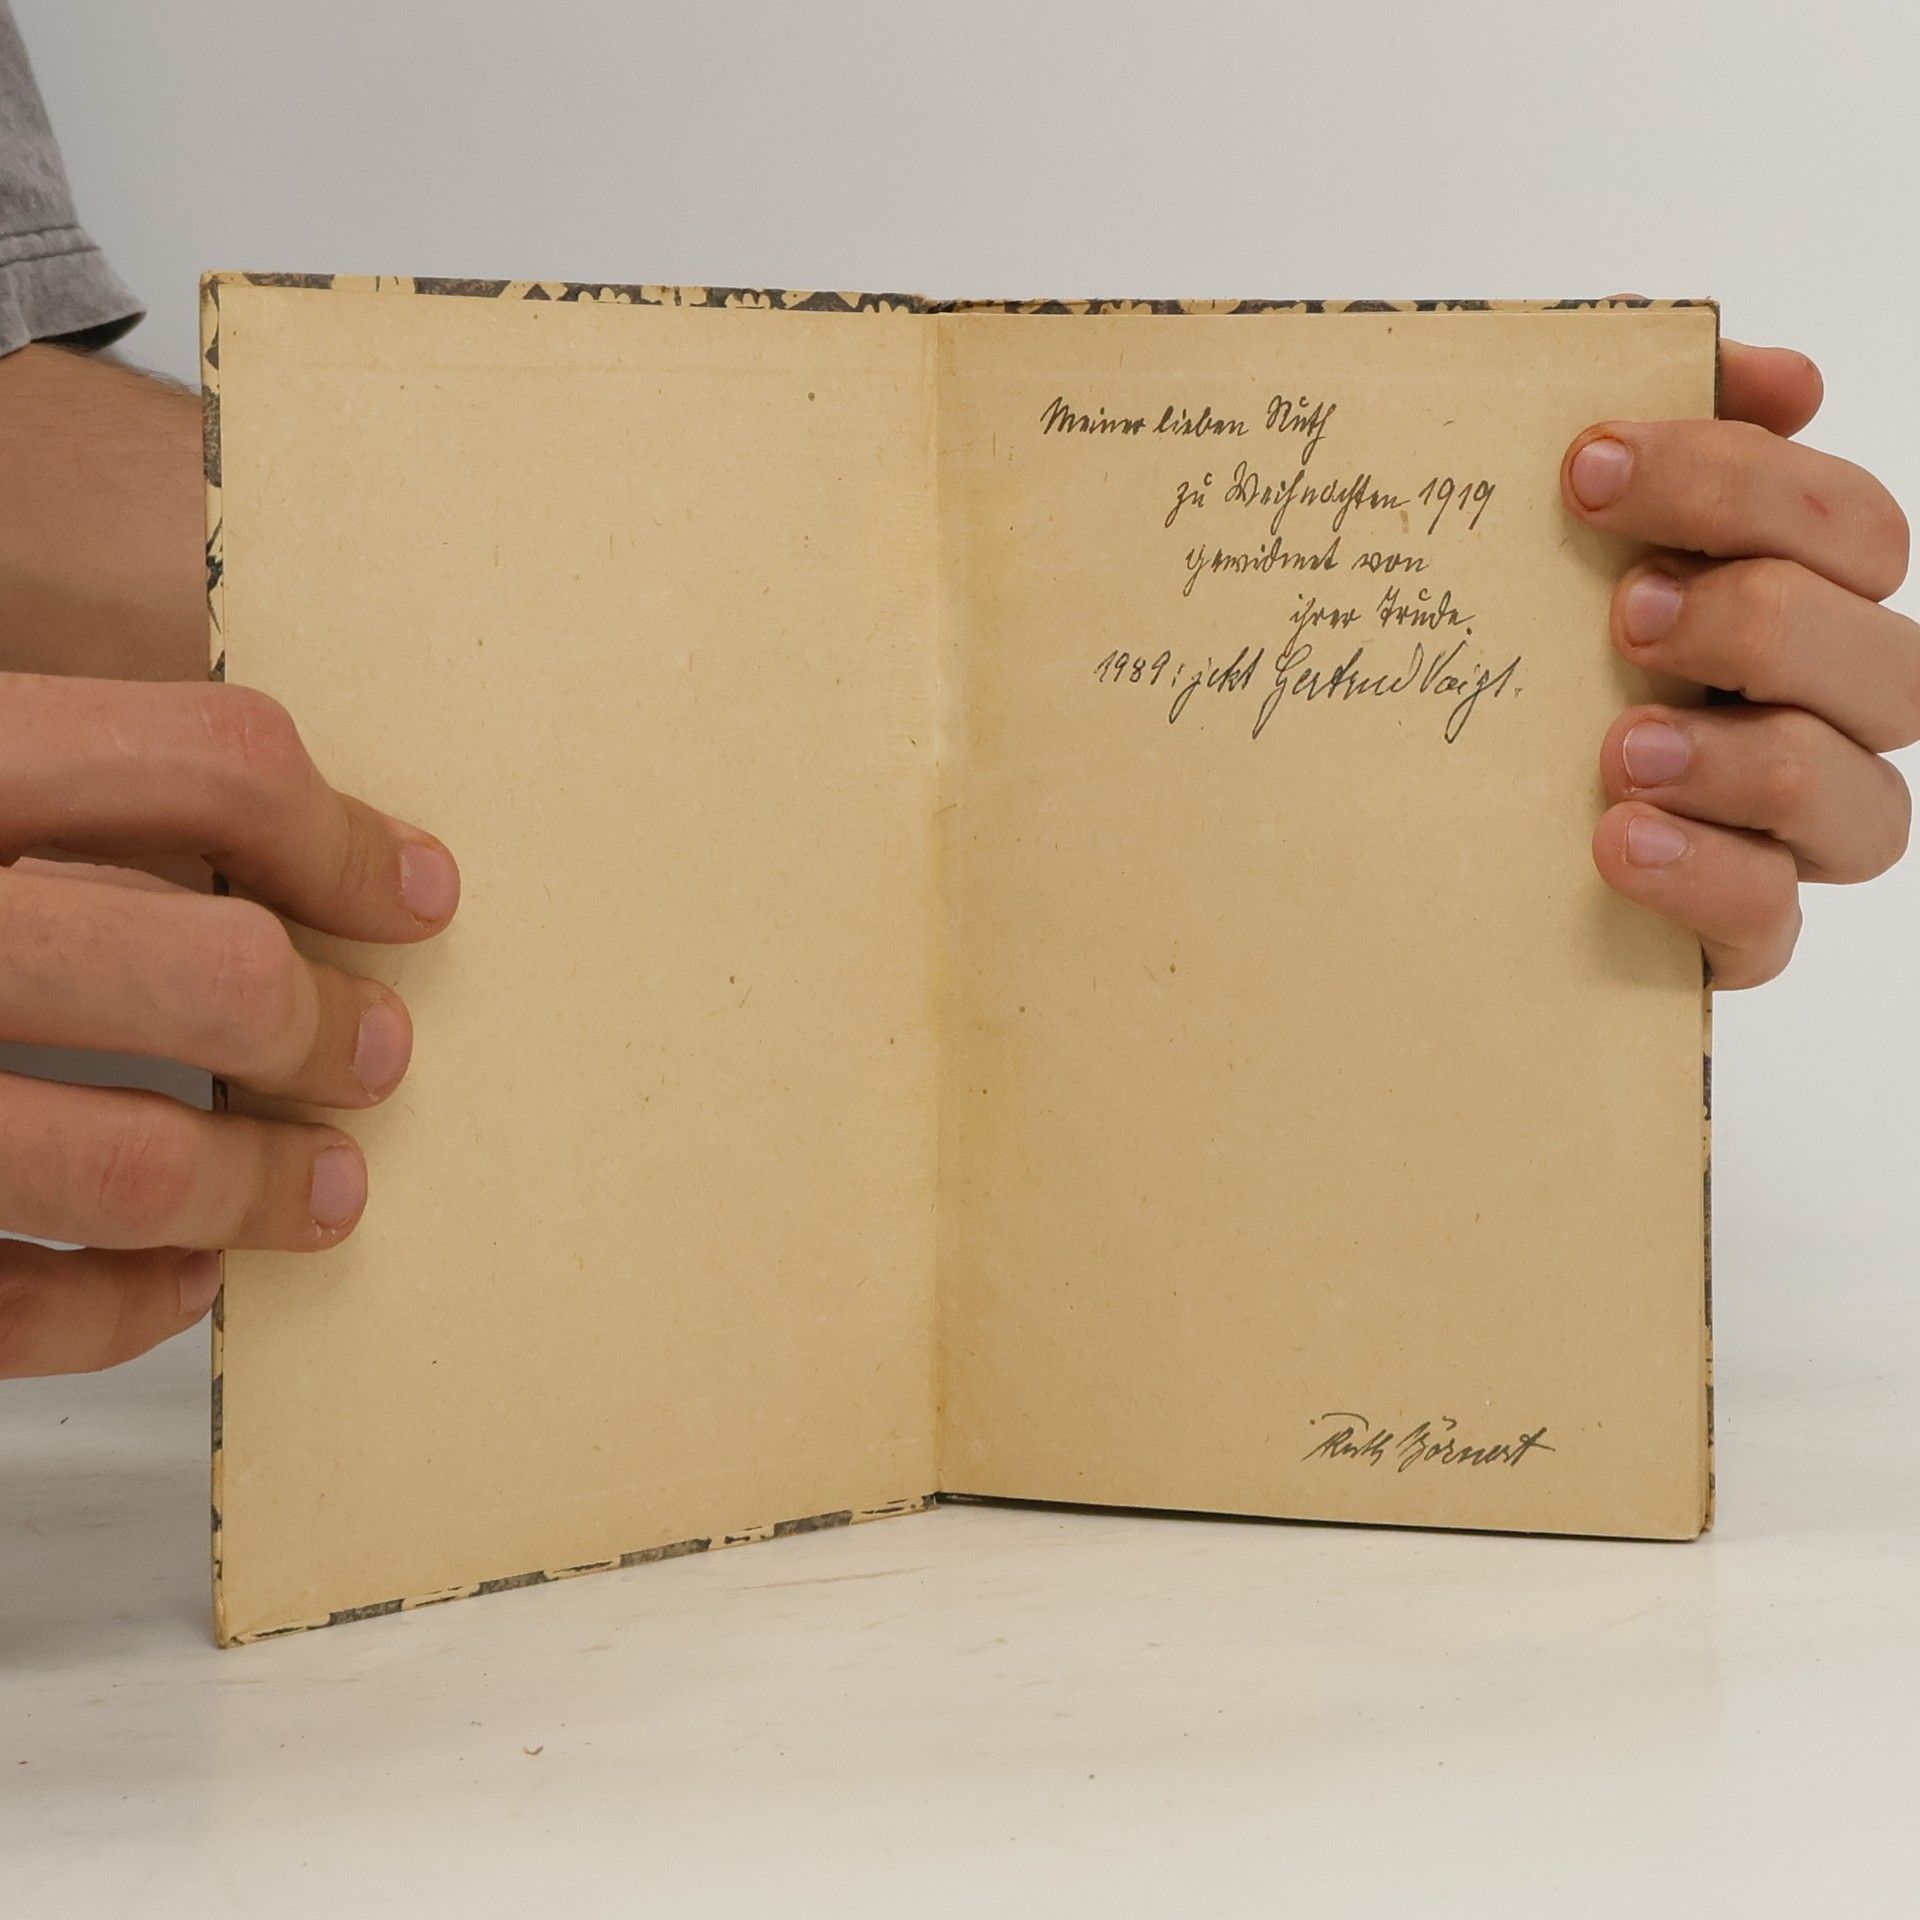 Meiner lieben Ruth
zu Weihnachten 1919
gewidmet von
ihrer Trude.
1989: jetzt Gertrud Voigt.
Ruth Börnert